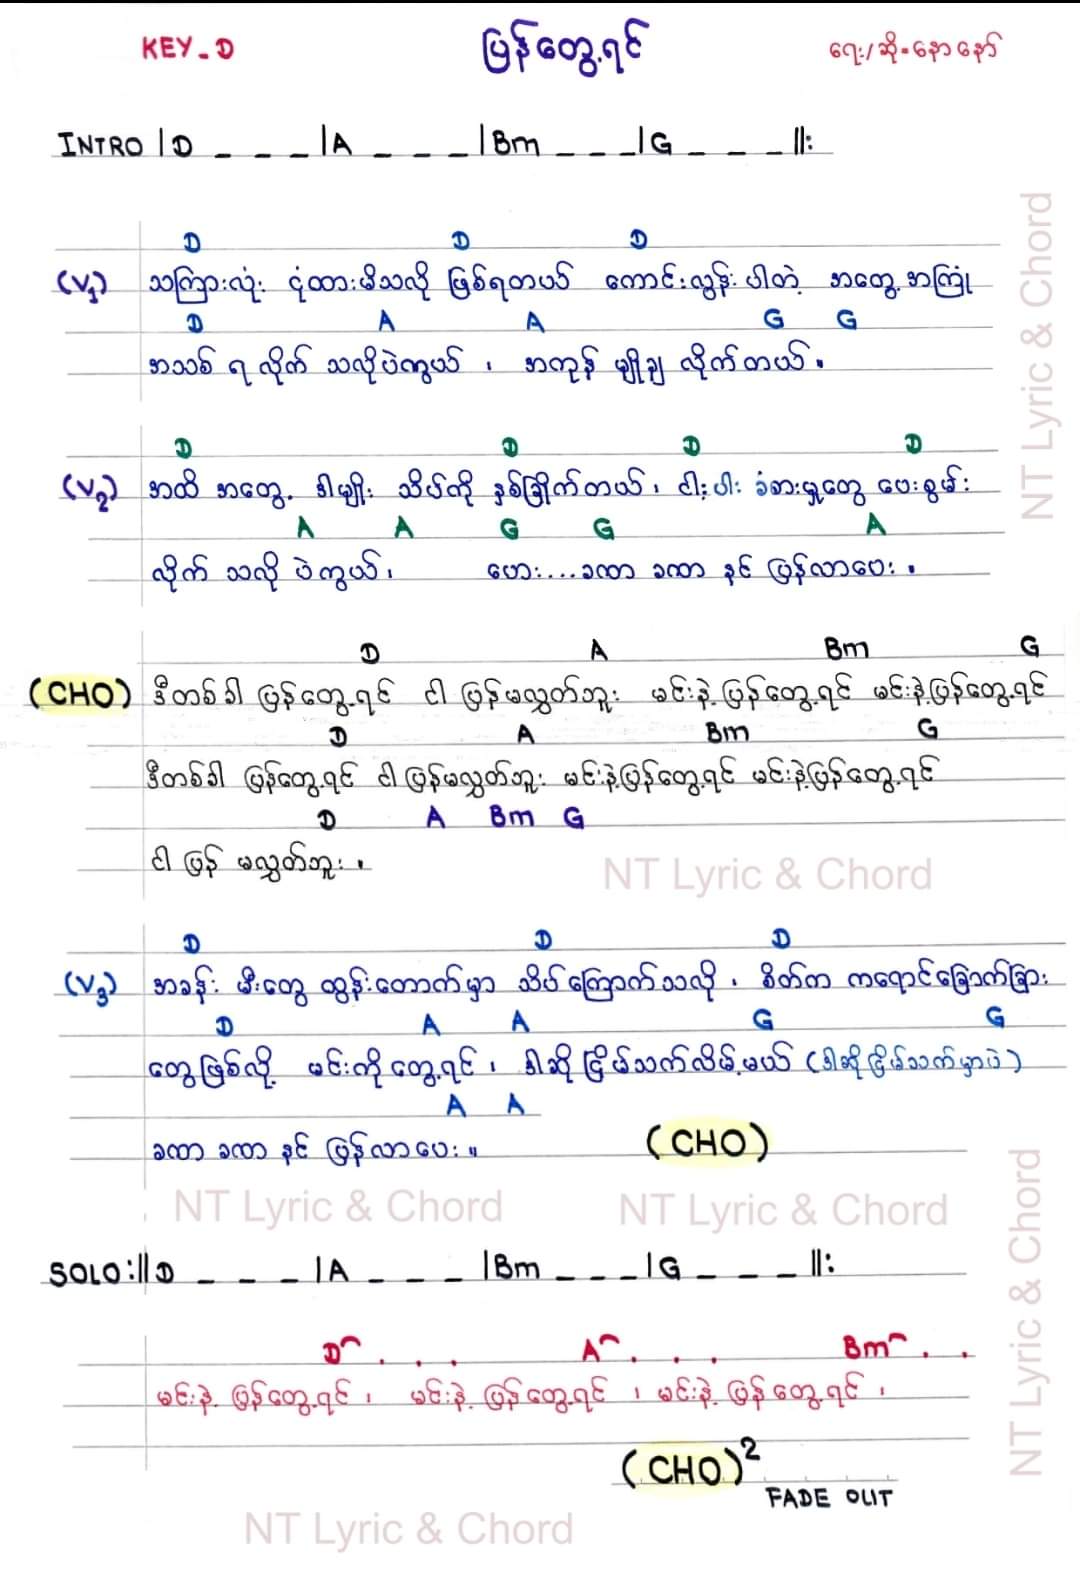 KEY - D ပြန်တွေ့ရင် ရေး/ဆို - နောနော်
INTRO | D _ _ _ | A _ _ _ | Bm _ _ _ | G _ _ _ ||:
D D D
(V1) သကြားလုံး ငုံထားမိသလို ဖြစ်ရတယ် ကောင်းလွန်းပါတဲ့ အတွေ့အကြုံ
D A A G G
အသစ် ရ လိုက် သလိုပဲကွယ် ၊ အကုန် မျိုချ လိုက်တယ် ။
D D D D
(V2) အထိ အတွေ့ ဒါမျိုး သိပ်ကို နှစ်ခြိုက်တယ် ၊ ငါးပါး ခံစားမှုတွေ ပေးစွမ်း
A A G G A
လိုက် သလို ပဲကွယ် ၊ ဟေး....ခဏ ခဏ နင် ပြန်လာပေး ။
D A Bm G
(CHO) ဒီတစ်ခါ ပြန်တွေ့ရင် ငါ ပြန်မလွှတ်ဘူး မင်းနဲ့ ပြန်တွေ့ရင် မင်းနဲ့ပြန်တွေ့ရင်
D A Bm G
ဒီတစ်ခါ ပြန်တွေ့ရင် ငါ ပြန်မလွှတ်ဘူး မင်းနဲ့ပြန်တွေ့ရင် မင်းနဲ့ပြန်တွေ့ရင်
D A Bm G
ငါ ပြန် မလွှတ်ဘူး ။
NT Lyric & Chord
D D D
(V3) အခန်း မီးတွေ ထွန်းတောက်မှာ သိပ်ကြောက်သလို ၊ စိတ်က ကရောင်ခြောက်ခြား
D A A G G
တွေဖြစ်လို့ မင်းကို တွေ့ရင် ၊ ဒါဆို ငြိမ်သက်လိမ့်မယ် (ဒါဆို ငြိမ်သက်မှာပဲ)
A A
ခဏ ခဏ နင် ပြန်လာပေး ။ (CHO)
NT Lyric & Chord NT Lyric & Chord
SOLO :|| D _ _ _ | A _ _ _ | Bm _ _ _ | G _ _ _ ||:
D . . . A . . . Bm . .
မင်းနဲ့ ပြန်တွေ့ရင် ၊ မင်းနဲ့ ပြန်တွေ့ရင် ၊ မင်းနဲ့ ပြန်တွေ့ရင် ၊
(CHO)²
FADE OUT
NT Lyric & Chord
NT Lyric & Chord
NT Lyric & Chord